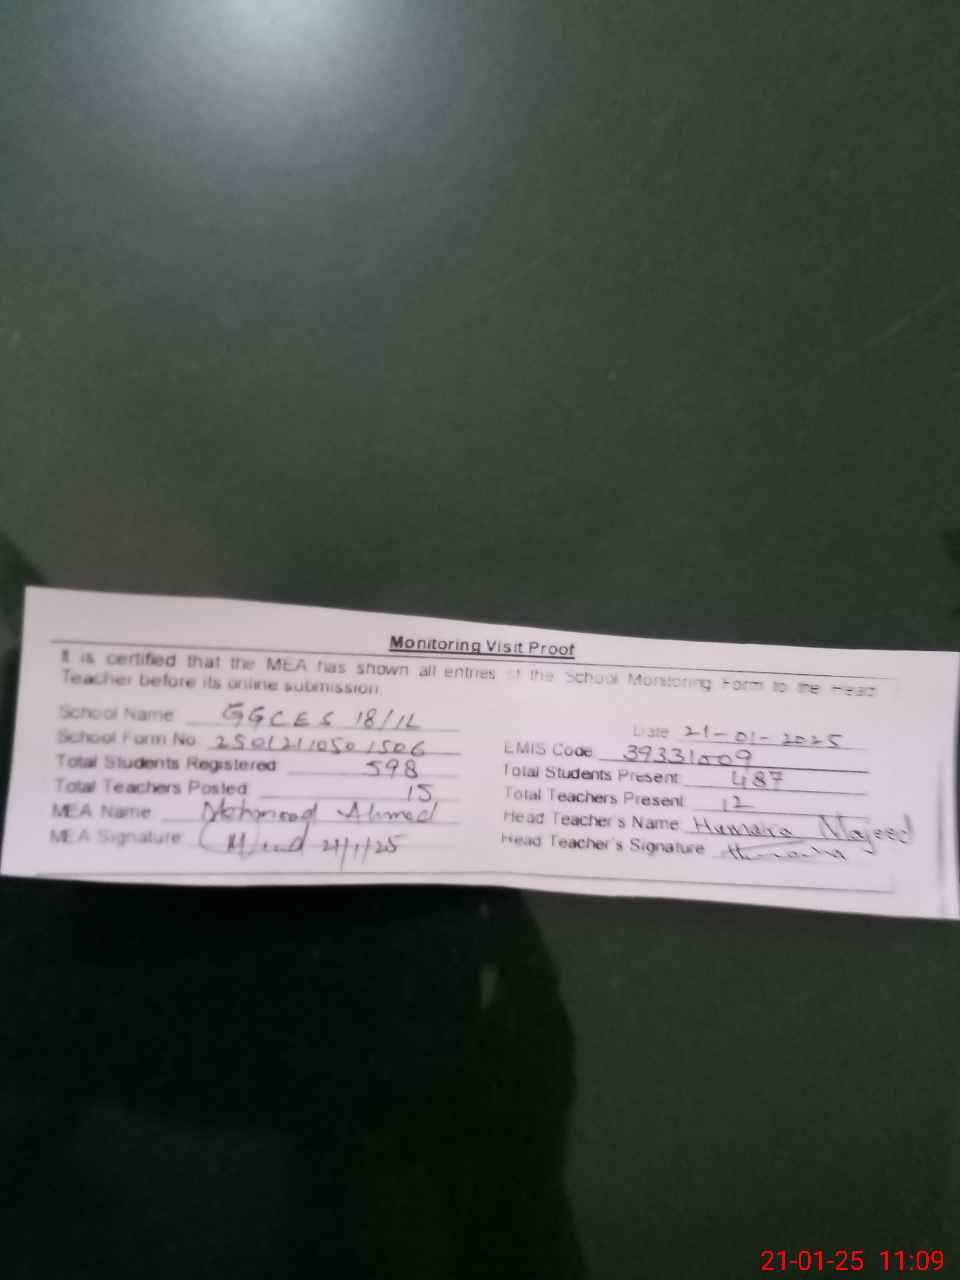 Monitoring Visit Proof
It is certified that the MEA has shown all entries of the School Monitoring Form to the Head
Teacher before its online submission
School Name GGCES 18/1L
Date 21-01-2025
School Form No: 25012110501506
EMIS Code: 39331009
Total Students Registered: 598
Total Students Present: 487
Total Teachers Posted: 15
Total Teachers Present: 12
MEA Name: Ahmed
Head Teacher's Name Humaira Majeed
MEA Signature: 21/1/25
Head Teacher's Signature
21-01-25 11:09